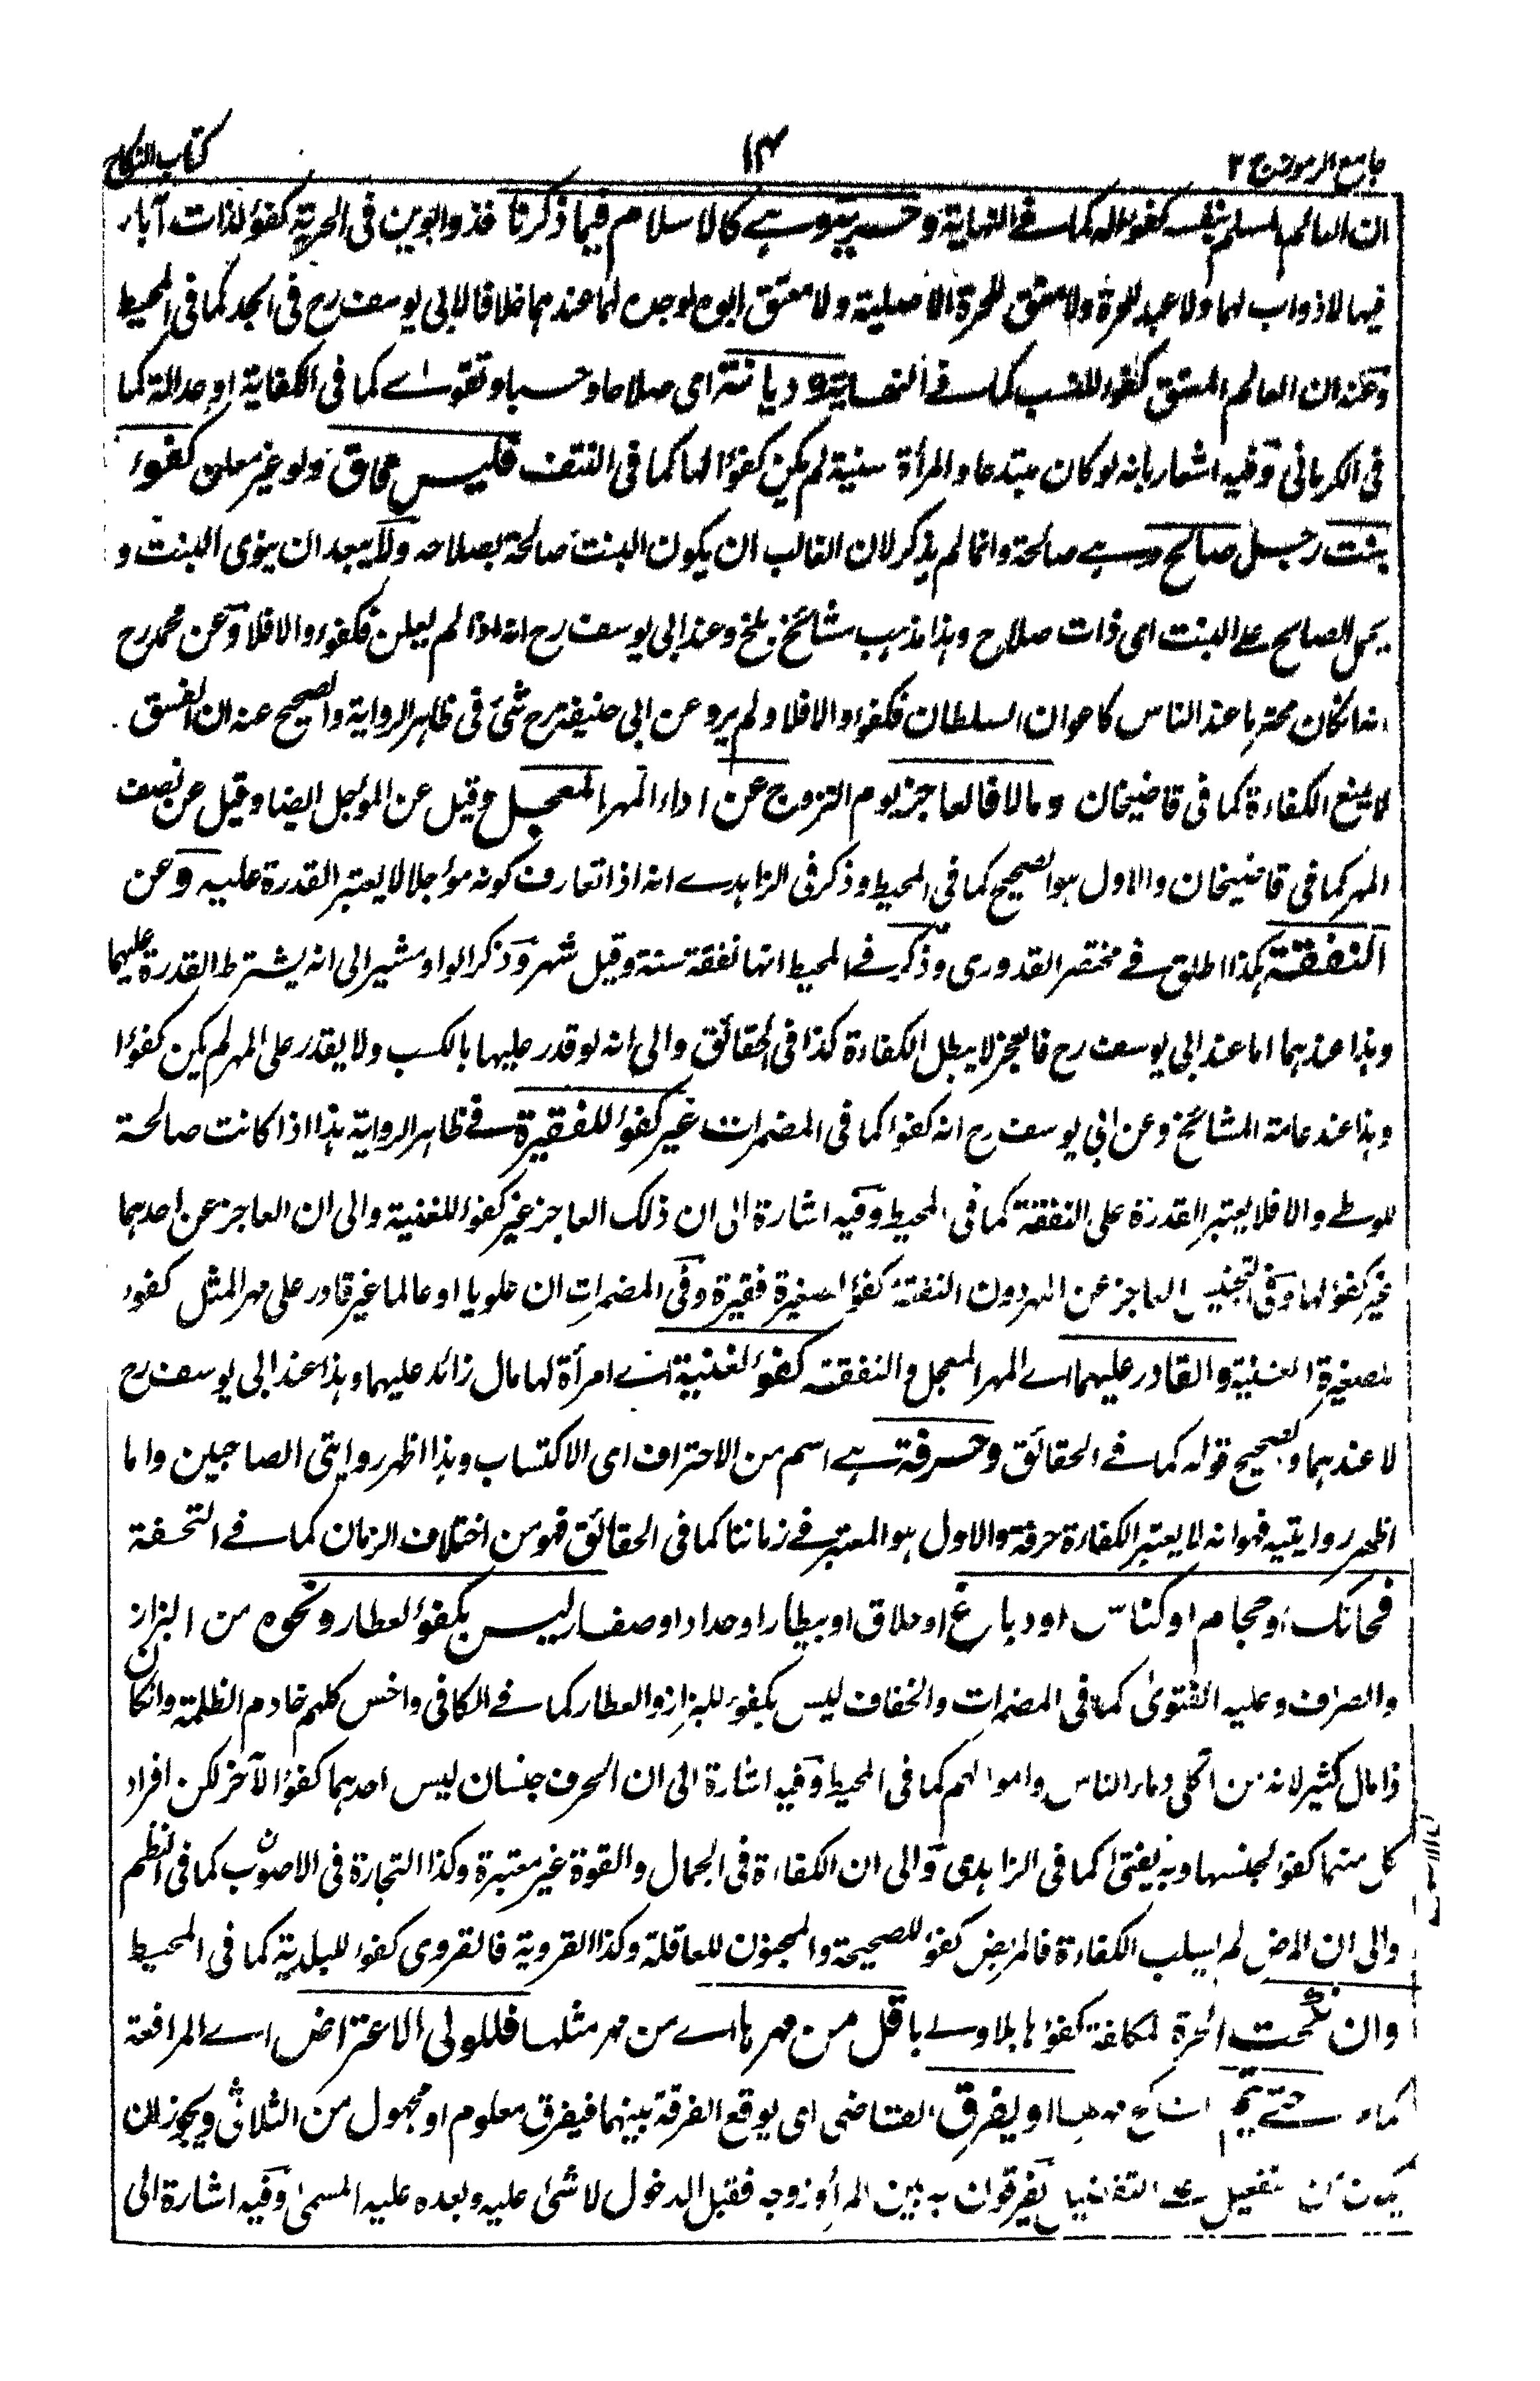 جامع الرموز ج ٢
١٤
كتاب النكاح
ان العالم المسلم بنفسه كفؤ له كما في النهاية وحرية وهي كالاسلام فيما ذكرنا فذو ابوين فى الحرية كفؤ لذات آباء
فيها لا ذو اب لها ولا عبد للحرة ولا معتق للحرة الاصلية ولا معتق ابوه لوجده لما عندهما خلافا لابى يوسف رح فى الجد كما فى المحيط
وعنه ان العالم المعتق كفؤ للنسب كما في النهاية وديانة اى صلاحا وحسبا وتقوى كما فى الكفاية او عدالة كما
فى الكرمانى وفيه اشعار بانه لو كان مبتدعا والمرأة سنية لم يكن كفؤا لها كما فى النتف فليس فاسق ولو غير معلن كفوء
بنت رجل صالح وهي صالحة وانما لم يذكر لان الغالب ان يكون البنت صالحة بصلاحه ولا يبعد ان ينوى البنت و
يحمل الصالح على البنت اى ذات صلاح وهذا مذهب مشائخ بلخ وعند ابى يوسف رح انه اذا لم يعلن فكفوء والا فلا وعن محمد رح
انه ان كان محترما عند الناس كاعوان السلطان فكفوء والا فلا ولم يرو عن ابى حنيفة رح شئ فى ظاهر الرواية والصحيح عنه ان الفسق
لا يمنع الكفاءة كما فى قاضيخان ومالا فالعاجز يوم التزوج عن اداء المهر المعجل وقيل عن المؤجل ايضا وقيل عن نصف
المهر كما فى قاضيخان والاول هو الصحيح كما فى المحيط وذكر فى الزاهدي انه اذا تعارف كونه مؤجلا لا يعتبر القدرة عليه وعن
النفقة هكذا اطلق في مختصر القدورى وذكر في المحيط انها نفقة سنة وقيل شهر وذكر الواو مشير الى انه يشترط القدرة عليهما
وهذا عندهما اما عند ابى يوسف رح فالعجز لا يبطل الكفاءة كذا فى الحقائق والى انه لو قدر عليها بالكسب ولا يقدر على المهر لم يكن كفؤا
وهذا عند عامة المشائخ وعن ابى يوسف رح انه كفوء كما فى المضمرات غير كفؤ للفقيرة في ظاهر الرواية هذا اذا كانت صالحة
للوطي والا فلا يعتبر القدرة على النفقة كما فى المحيط وفيه اشارة الى ان ذلك العاجز غير كفؤ للغنية والى ان العاجز عن احدهما
غير كفؤ لها وفى التجنيس العاجز عن المهر دون النفقة كفؤ لصغيرة فقيرة وفى المضمرات ان علويا او عالما غير قادر على مهر المثل كفوء
لصغيرة الغنية والقادر عليهما اي المهر المعجل والنفقة كفؤ لغنية اي امرأة لها مال زائد عليهما وهذا عند ابى يوسف رح
لا عندهما والصحيح قوله كما في الحقائق وحرفة هي اسم من الاحتراف اى الاكتساب وهذا اظهر روايتى الصاحبين واما
اظهر روايتيه فهو انه لا يعتبر الكفاءة حرفة والاول هو المعتبر في زماننا كما فى الحقائق فهو من اختلاف الزمان كما في التحفة
فحائك او حجام او كناس او دباغ او حلاق او بيطار او حداد او صفار ليس بكفؤ لعطار ونحوه من البزاز
والصراف وعليه الفتوى كما فى المضمرات والخفاف ليس بكفؤ للبزاز والعطار كما في الكافى واخس كلهم خادم الظلمة وان كان
ذا مال كثير لانه من اكلى دماء الناس واموالهم كما فى المحيط وفيه اشارة الى ان الحرف جنسان ليس احدهما كفؤ الآخر لكن افراد
كل منهما كفؤ لجنسها وبه يفتى كما فى الزاهدى والى ان الكفاءة فى الجمال والقوة غير معتبرة وكذا التجارة فى الاصوب كما فى النظم
والى ان المرض لم يسلب الكفاءة فالمريض كفؤ للصحيحة والمجنون للعاقلة وكذا القروية فالقروى كفؤ للبلدية كما فى المحيط
وان نكحت الحرة المكلفة كفؤها بلا ولي باقل من مهرها اي من مهر مثلها فللولى الاعتراض اي المرافعة
حتى يتم مهرها او يفرق القاضى اى يوقع الفرقة بينهما فيفرق معلوم او مجهول من الثلاثى ويجوز ان
يكون من التفعيل يفرقون به بين المرأ وزوجه فقبل الدخول لا شئ عليه وبعده عليه المسمى وفيه اشارة الى